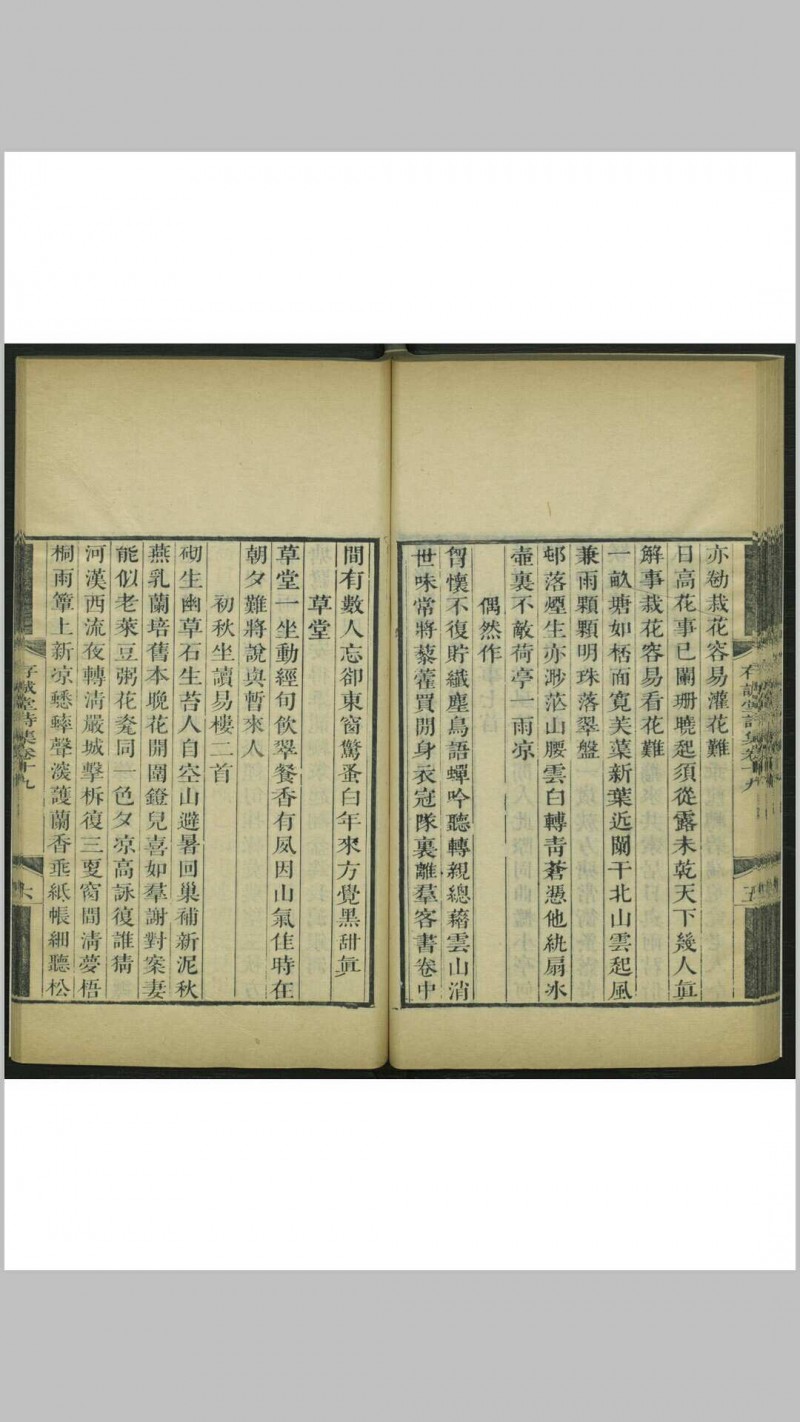 亦勸栽花容易灌花難
日高花事已闌珊曉起須從露未乾天下幾人眞
解事栽花容易看花難
一畝塘如栝面寬芙蕖新葉近闌干北山雲起風
兼雨顆顆明珠落翠盤
邨落煙生亦渺茫山腰雲白轉青蒼憑他紈扇冰
壺裏不敵荷亭一雨凉
偶然作
胷懷不復貯纖塵鳥語蟬吟聽轉親總藉雲山消
世味常將藜藿買閒身衣冠隊裏離羣客書卷中
存誠堂詩集卷十九
五
間有數人忘卻東窗驚蚤白年來方覺黑甜眞
草堂
草堂一坐動經旬飲翠餐香有夙因山氣佳時在
朝夕難將說與暫來人
初秋坐讀易樓二首
砌生幽草石生苔人自空山避暑回巢補新泥秋
燕乳蘭培舊本晚花開圍鐙兒喜如羣謝對案妻
能似老萊豆粥花瓷同一色夕凉高詠復誰猜
河漢西流夜轉淸嚴城擊柝復三更窗間淸夢梧
桐雨簟上新凉蟋蟀聲淡護蘭香垂紙帳細聽松
存誠堂詩集卷十九
六